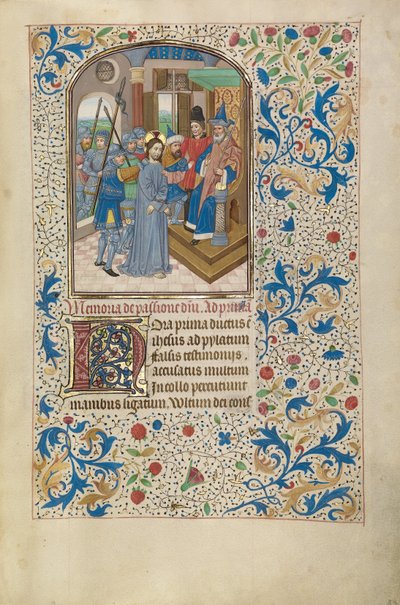 Memoria de passione dni. Ad prima
Hora prima ductus ē
ihesus ad pylatum
falsis testimonijs
accusatus multum
In collo percutiunt
manibus ligatum Voltum dei cons